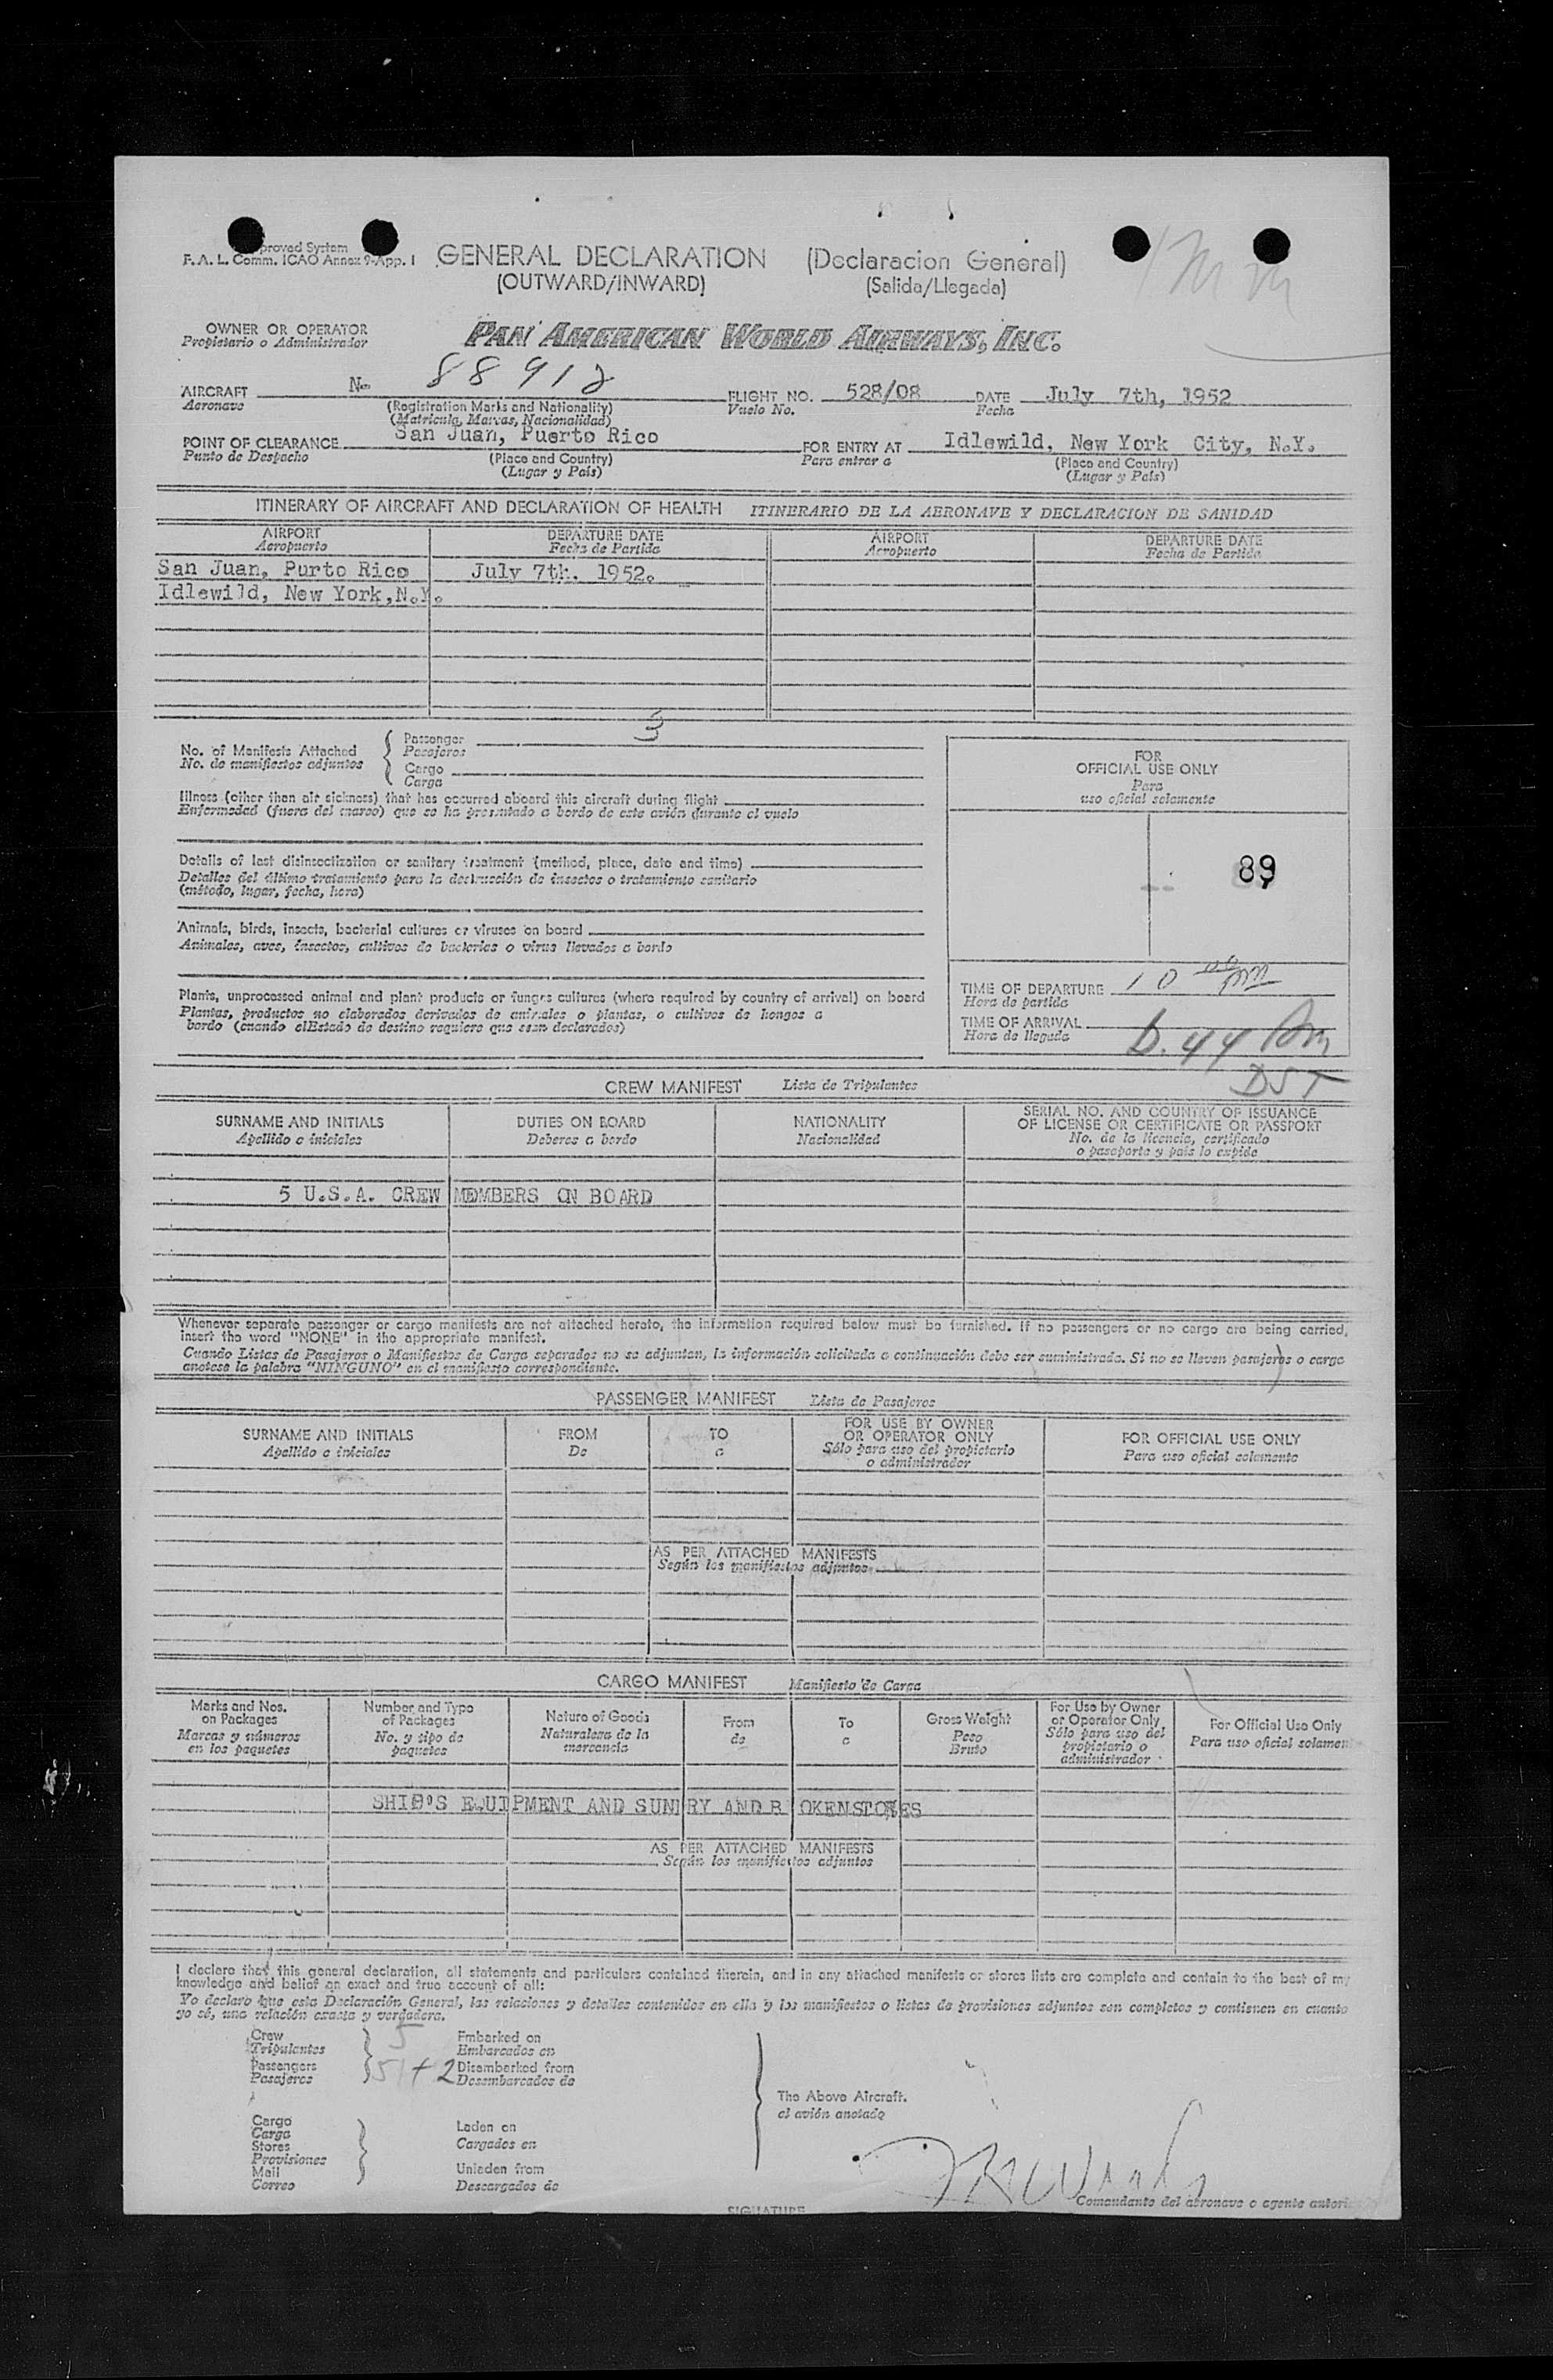 proved System
F. A. L. Comm. ICAO Annex 9-App. I
GENERAL DECLARATION (Declaracion General)
(OUTWARD/INWARD) (Salida/Llegada)
OWNER OR OPERATOR
Propietario o Administrador
PAN AMERICAN WORLD AIRWAYS, INC.
AIRCRAFT N- 88912 FLIGHT NO. 528/08 DATE July 7th, 1952
Aeronave (Registration Marks and Nationality) Vuelo No. Fecha
(Matricula, Marcas, Nacionalidad)
POINT OF CLEARANCE San Juan, Puerto Rico FOR ENTRY AT Idlewild, New York City, N.Y.
Punto de Despacho (Place and Country) Para entrar a (Place and Country)
(Lugar y País) (Lugar y País)
ITINERARY OF AIRCRAFT AND DECLARATION OF HEALTH ITINERARIO DE LA AERONAVE Y DECLARACION DE SANIDAD
AIRPORT DEPARTURE DATE AIRPORT DEPARTURE DATE
Aeropuerto Fecha de Partida Aeropuerto Fecha de Partida
San Juan, Purto Rico July 7th. 1952.
Idlewild, New York,N.Y.
No. of Manifests Attached
No. de manifiestos adjuntos
Passenger 3
Pasajeros
Cargo
Carga
Illness (other than air sickness) that has occurred aboard this aircraft during flight
Enfermedad (fuera del mareo) que se ha presentado a bordo de este avión durante el vuelo
Details of last disinsectization or sanitary treatment (method, place, date and time)
Detalles del último tratamiento para la destrucción de insectos o tratamiento sanitario
(método, lugar, fecha, hora)
Animals, birds, insects, bacterial cultures or viruses on board
Animales, aves, insectos, cultivos de bacterias o virus llevados a bordo
Plants, unprocessed animal and plant products or fungus cultures (where required by country of arrival) on board
Plantas, productos no elaborados derivados de animales o plantas, o cultivos de hongos a
bordo (cuando elEstado de destino requiere que sean declarados)
FOR
OFFICIAL USE ONLY
Para
uso oficial solamente
89
TIME OF DEPARTURE 10 00 PM
Hora de partida
TIME OF ARRIVAL 6.44 Am
Hora de llegada
DST
CREW MANIFEST Lista de Tripulantes
SURNAME AND INITIALS DUTIES ON BOARD NATIONALITY SERIAL NO. AND COUNTRY OF ISSUANCE
Apellido e iniciales Deberes a bordo Nacionalidad OF LICENSE OR CERTIFICATE OR PASSPORT
No. de la licencia, certificado
o pasaporte y país lo expide
5 U.S.A. CREW MEMBERS ON BOARD
Whenever separate passenger or cargo manifests are not attached hereto, the information required below must be furnished. If no passengers or no cargo are being carried,
insert the word "NONE" in the appropriate manifest.
Cuando Listas de Pasajeros o Manifiestos de Carga separados no se adjuntan, la información solicitada a continuación debe ser suministrada. Si no se lleven pasajeros o carga
anotese la palabra "NINGUNO" en el manifiesto correspondiente.
PASSENGER MANIFEST Lista de Pasajeros
SURNAME AND INITIALS FROM TO FOR USE BY OWNER FOR OFFICIAL USE ONLY
Apellido e iniciales De a OR OPERATOR ONLY Para uso oficial solamente
Sólo para uso del propietario
o administrador
AS PER ATTACHED MANIFESTS
Según los manifiestos adjuntos
CARGO MANIFEST Manifiesto de Carga
Marks and Nos. Number and Type Nature of Goods From To Gross Weight For Use by Owner For Official Use Only
on Packages of Packages Naturaleza de la de a Peso or Operator Only Para uso oficial solamen
Marcas y números No. y tipo de mercancía Bruto Sólo para uso del
en los paquetes paquetes propietario o
administrador
SHIP'S EQUIPMENT AND SUNDRY AND B OKENSTORES
AS PER ATTACHED MANIFESTS
Según los manifiestos adjuntos
I declare that this general declaration, all statements and particulars contained therein, and in any attached manifests or stores lists are complete and contain to the best of my
knowledge and belief an exact and true account of all:
Yo declaro que esta Declaración General, las relaciones y detalles contenidos en ella y los manifiestos o listas de provisiones adjuntos son completos y contienen en cuanto
yo sé, una relación exacta y verdadera.
Crew 5 Embarked on
Tripulantes Embarcados en
Passengers 51 + 2 Disembarked from
Pasajeros Desembarcados de
The Above Aircraft.
el avión anotado
Cargo
Carga Laden on
Stores Cargados en
Provisiones
Mail Unladen from
Correo Descargados de
SIGNATURE
Comandante del aeronave o agente autori